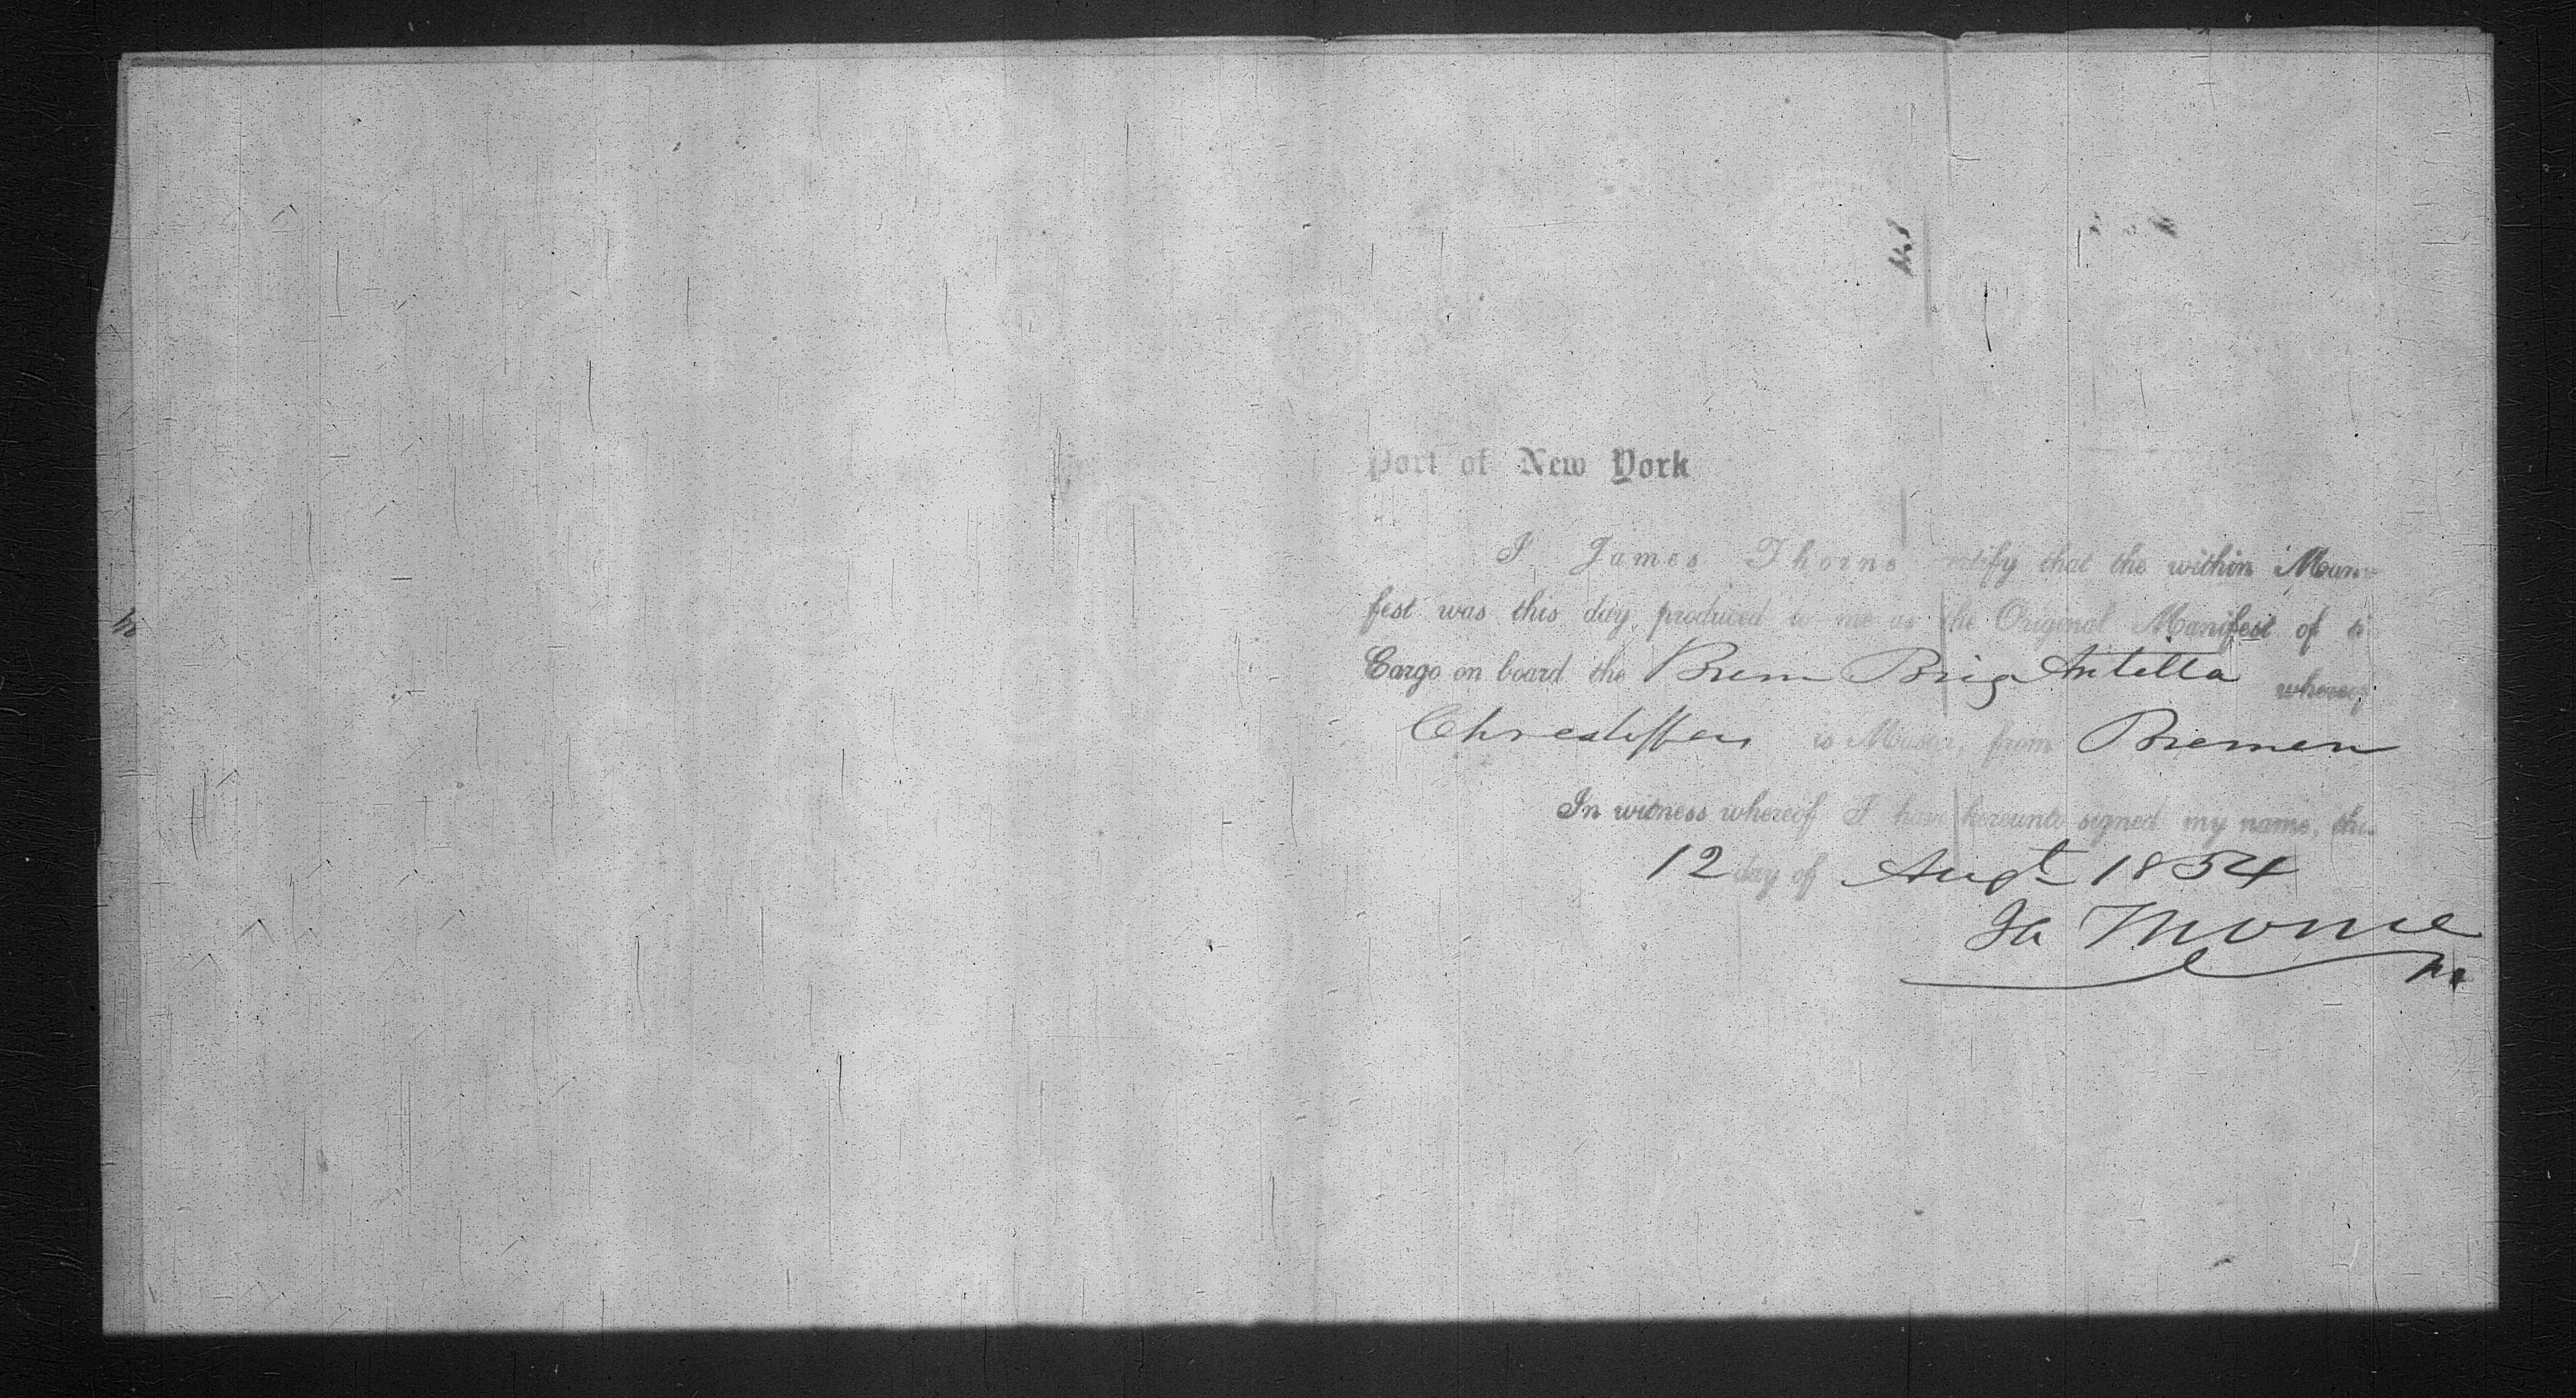 Port of New York
I James Thorne certify that the within Mani
fest was this day produced to me as the Original Manifest of
Cargo on board the Brem Brig Antella whereof
Christiffen is Master, from Bremen
In witness whereof I have hereunto signed my name, this
12 day of Augt 1854
Ja Thorne